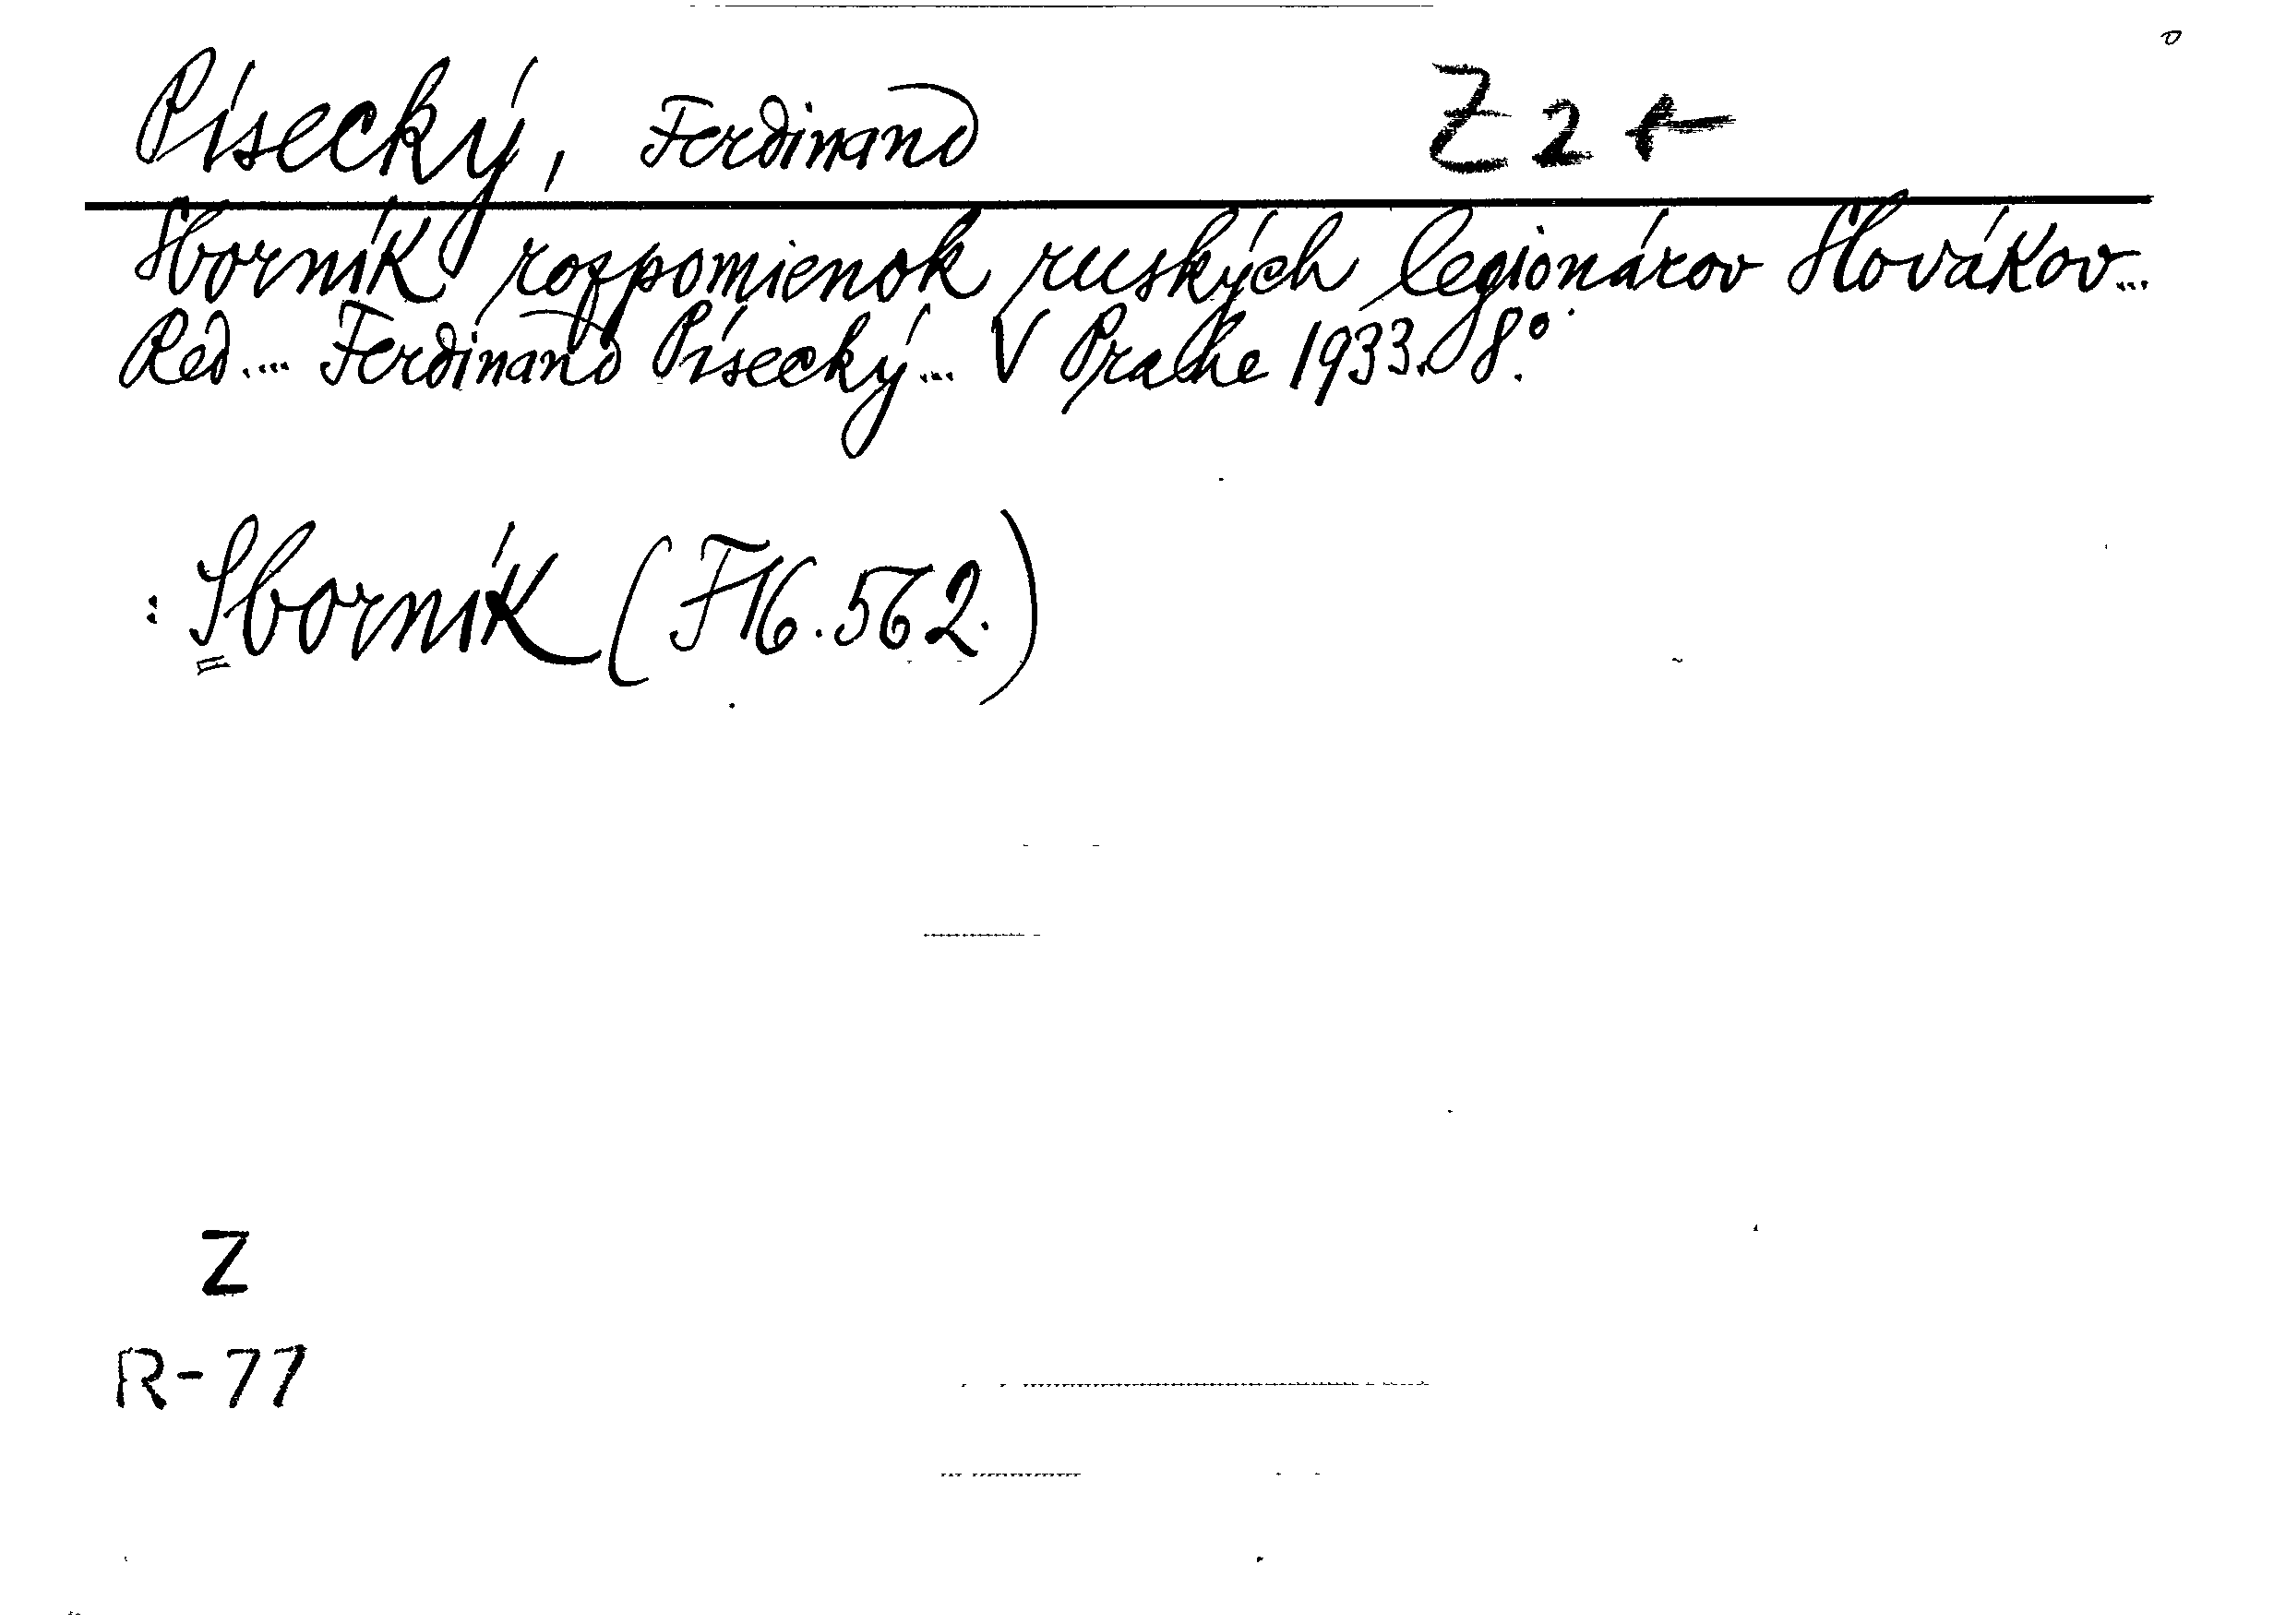 Písecký, Ferdinand Z2+
Sborník rozpomienok ruských legionárov Slovákov...
Red.... Ferdinand Písecký... V Prahe 1933. 8°.
: Sborník (F 16.562.)
Z
R-77